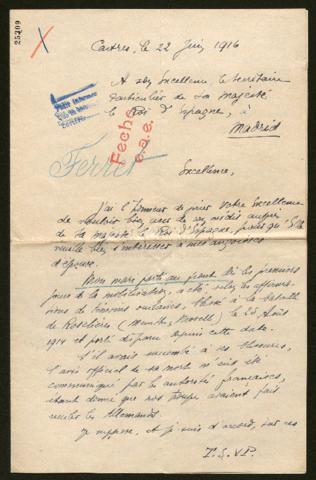 25209
Castres, le 22 Juin 1916
A son Excellence le Secrétaire
particulier de Sa Majesté
le Roi d'Espagne, à
Madrid
Fecho
Ferrer
Excellence,
J'ai l'honneur de prier Votre Excellence
de vouloir bien, user de son crédit auprès
de Sa Majesté le Roi d'Espagne, pour qu'Elle
veuille bien s'intéresser à mes angoisses
d'épouse.
Mon mari parti au front dès les premiers
jours de la mobilisation, a été, selon les affirma-
tions de témoins oculaires, blessé à la bataille
de Roselières (Meurthe, Moselle) le 25 Août
1914 et porté disparu depuis cette date.
S'il avait succombé à ses blessures,
l'avis officiel de sa mort m'eût été
communiqué par les autorités françaises,
étant donné que nos troupes avaient fait
reculer les Allemands.
Je suppose, et je suis d'accord, sur ce
T.S.V.P.